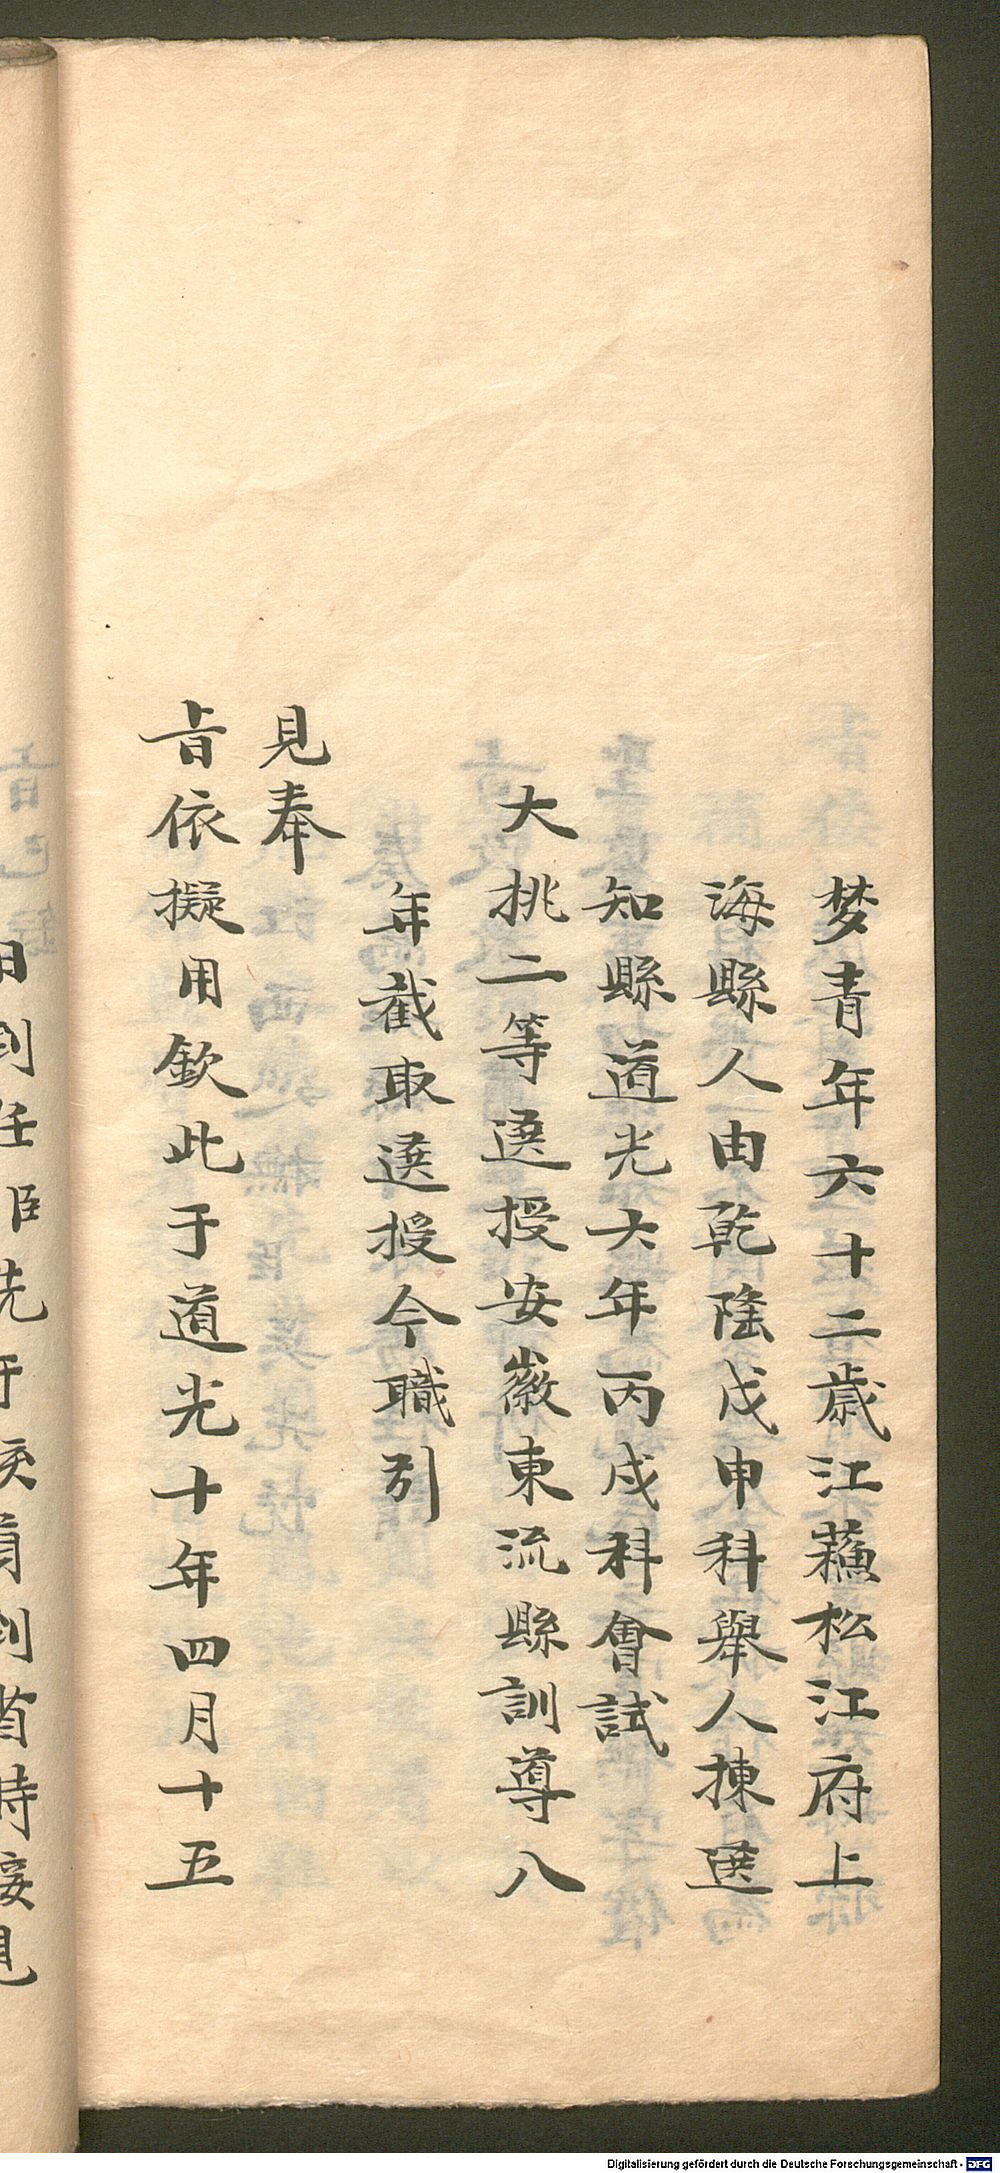 梦青年六十二歲江蘓松江府上
海縣人由乾隆戊申科舉人揀選
知縣道光六年丙戌科會試
大挑二等選授安徽東流縣訓導八
年截取選授今職引
見奉
旨依擬用欽此于道光十年四月十五
到任
到省時接見
Digitalisierung gefördert durch die Deutsche Forschungsgemeinschaft - DFG